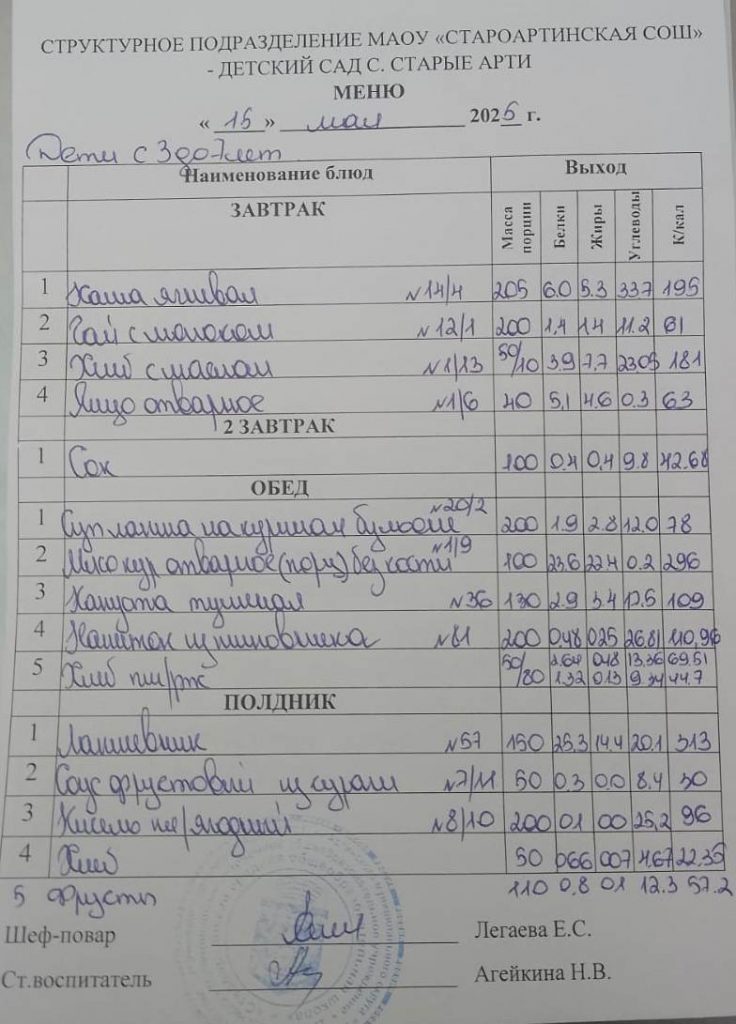 СТРУКТУРНОЕ ПОДРАЗДЕЛЕНИЕ МАОУ «СТАРОАРТИНСКАЯ СОШ»
- ДЕТСКИЙ САД С. СТАРЫЕ АРТИ
МЕНЮ
« 15 » мая 2025 г.
Дети с 3 до 7 лет
Наименование блюд Выход
ЗАВТРАК Масса порции Белки Жиры Углеводы К/кал
1 Каша ячневая №14/4 205 6.0 5.3 33.7 195
2 Чай с молоком №12/1 200 1.4 1.4 11.2 61
3 Хлеб с маслом №1/13 50/10 3.9 7.7 23.05 181
4 Яйцо отварное №1/6 40 5,1 4.6 0.3 63
2 ЗАВТРАК
1 Сок 100 0.4 0.4 9.8 42.68
ОБЕД
1 Суп лапша на курином бульоне №20/2 200 1.9 2.8 12.0 78
2 Мясо кур отварное (порц) без кости №1/9 100 23.6 22.4 0.2 296
3 Капуста тушеная №36 130 2.9 3.4 12.5 109
4 Напиток из шиповника №81 200 0.48 0.25 26.81 110,96
5 Хлеб пш/рж 50/80 2.64 0.48 13.36 69.51
1.32 0.13 9.34 44.7
ПОЛДНИК
1 Лапшевник №57 150 25,3 14.4 20.1 313
2 Соус фруктовый из кураги №7/11 50 0.3 0.0 8.4 30
3 Кисель пл/ягодный №8/10 200 0.1 00 25,2 96
4 Хлеб 50 0.66 0.07 4.67 22.35
5 Фрукты 110 0.8 0.1 12.3 57.2
Шеф-повар Легаева Е.С.
Ст.воспитатель Агейкина Н.В.